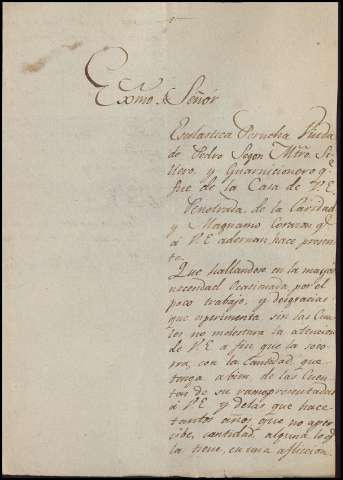 Exmo. Señor
Escolastica Perucha Viuda
de Pedro Segon Mtro. Si-
llero, y Guarnicionero q.
fue de la Casa de V.E.
Penetrada de la Caridad
y Magnamo Corazon q.
á V.E adornan hace presen-
te
Que hallandose en la mayor
necesidad Ocasionada, por el
poco trabajo, y desgracias
que esperimenta sin las Cua-
les no molestara la atencion
de V.E a fin que la soco-
rra, con la Cantidad que
tenga abien, de las Cuen-
tas de su ramo presentadas
á V.E y detras que hace
tantos años que no aper-
cibe, cantidad, alguna lo q.
la tiene, en una afliccion.